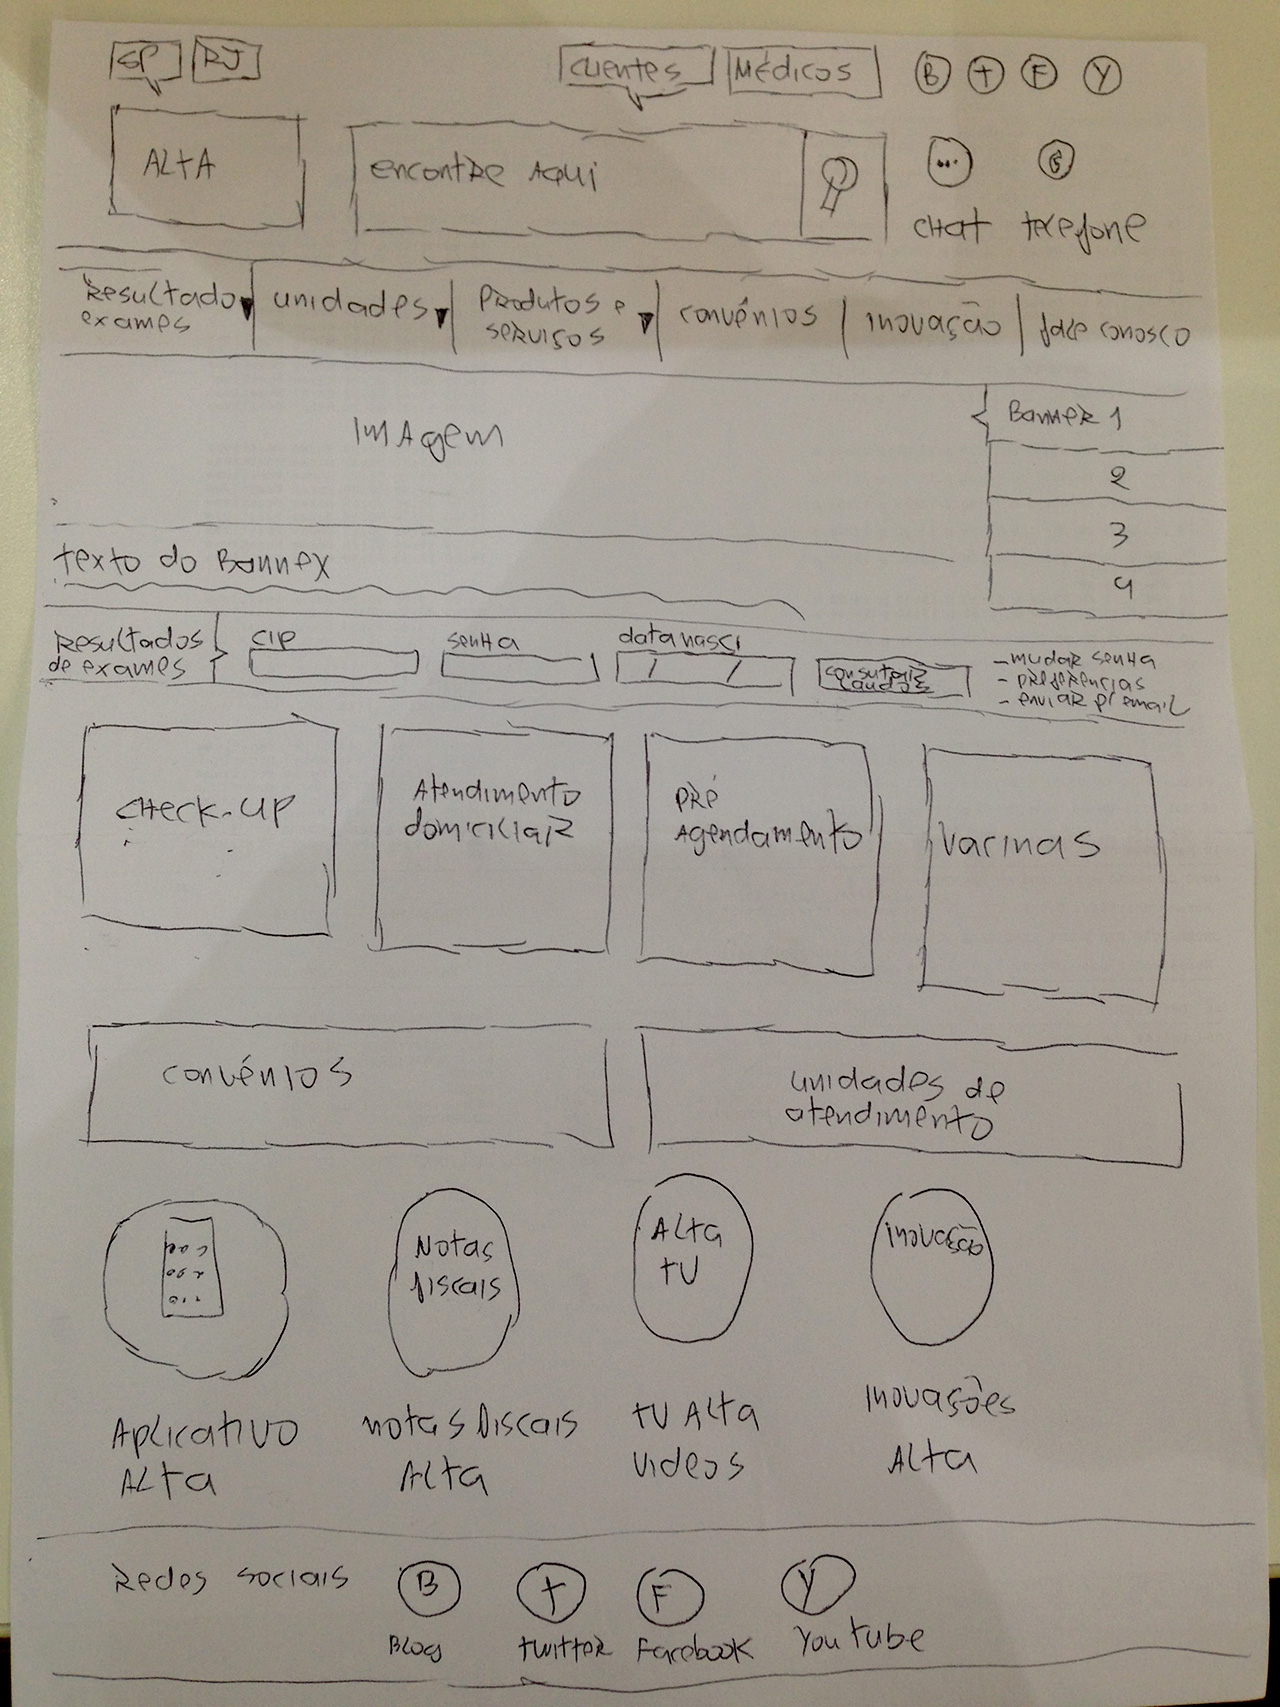 SP RJ CLIENTES MÉDICOS B T F Y
ALTA
encontre AQUI
CHAT telefone
Resultado exames
unidades
Produtos e serviços
convênios
inovação
fale conosco
IMAgem
Banner 1
2
3
4
texto do Banner
Resultados de exames
CIP
senha
data nasci
/ /
consultar laudos
- mudar senha
- preferências
- enviar p/ email
CHeck-UP
Atendimento domiciliar
PRÉ Agendamento
Vacinas
convênios
unidades de atendimento
Notas fiscais
Alta TV
inovação
Aplicativo ALTA
notas fiscais ALTA
TV Alta videos
Inovações ALTA
Redes sociais
B T F Y
Blog twitter Facebook Youtube